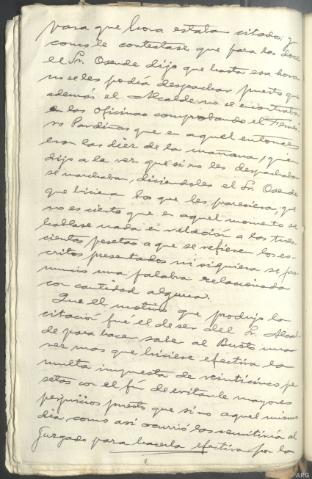 para que hora estaban citados, y
como le contestase que para las doce
el Sr. Osende dijo que hasta esa hora
no se les podía despachar puesto que
además el Alcalde no se encontraba
en las oficinas comprobando el
Pardiñas que en aquel entonces
eran las diez de la mañana, quien
dijo a la vez que si no les despachaba
se marchaban, diciendoles el Sr. Osende
que hiciera lo que les pareciera, que
no es cierto que en aquel momento se
hablase nada en relación a las tres
cientas pesetas a que se refieren los es-
critos presentados ni siquiera se pro
nunció una palabra relacionada
con cantidad alguna.
Que el motivo que produjo la
citación fué el deseo del Sr. Alcal
de para hacer saber al Busto una
vez mas que hiciese efectiva la
multa impuesta de veinticinco pe
setas con el fin de evitarle mayores
perjuicios puesto que si no aquel mismo
día, como asi ocurrió los remitiria al
Juzgado para hacerla efectiva por la
ARG